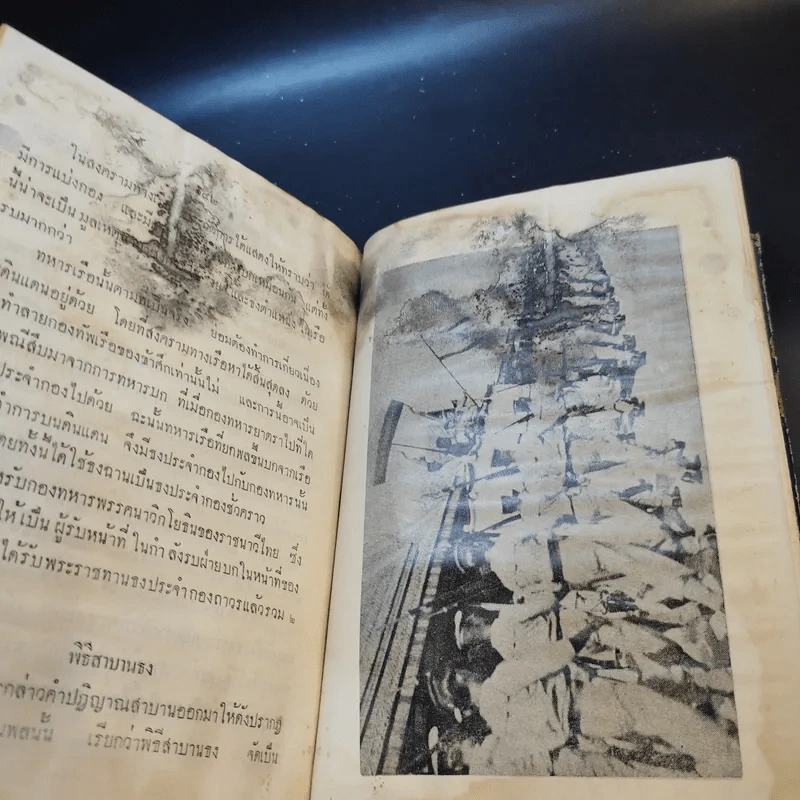 ในสงครามทาง
มีการแบ่งกอง และมี ได้แสดงให้ทราบว่า
นี้น่าจะเป็นมูลเหตุ แต่ทั้ง
รบมากกว่า และธงตำแหน่ง
ทหารเรือนั้นตาม ย่อมต้องทำการเกี่ยวเนื่อง
ดินแดนอยู่ด้วย โดยที่สงครามทางเรือหาได้สิ้นสุดลง ด้วย
ทำลายกองทัพเรือของข้าศึกเท่านั้นไม่ และการนี้อาจเป็น
พณีสืบมาจากการทหารบก ที่เมื่อกองทหารยาตราไปที่ใด
ประจำกองไปด้วย ฉะนั้นทหารเรือที่ยกพลขึ้นบกจากเรือ
ทำการบนดินแดน จึงมีธงประจำกองไปกับกองทหารนั้น
ดยทั้งนี้ได้ใช้ธงฉานเป็นธงประจำกองชั่วคราว
รับกองทหารพรรคนาวิกโยธินของราชนาวีไทย ซึ่ง
ให้เป็นผู้รับหน้าที่ในกำลังรบฝ่ายบกในหน้าที่ของ
ได้รับพระราชทานธงประจำกองถาวรแล้วรวม ๒
พิธีสาบานธง
กล่าวคำปฏิญาณสาบานออกมาให้ดังปรากฏ
พลนั้น เรียกว่าพิธีสาบานธง จัดเป็น